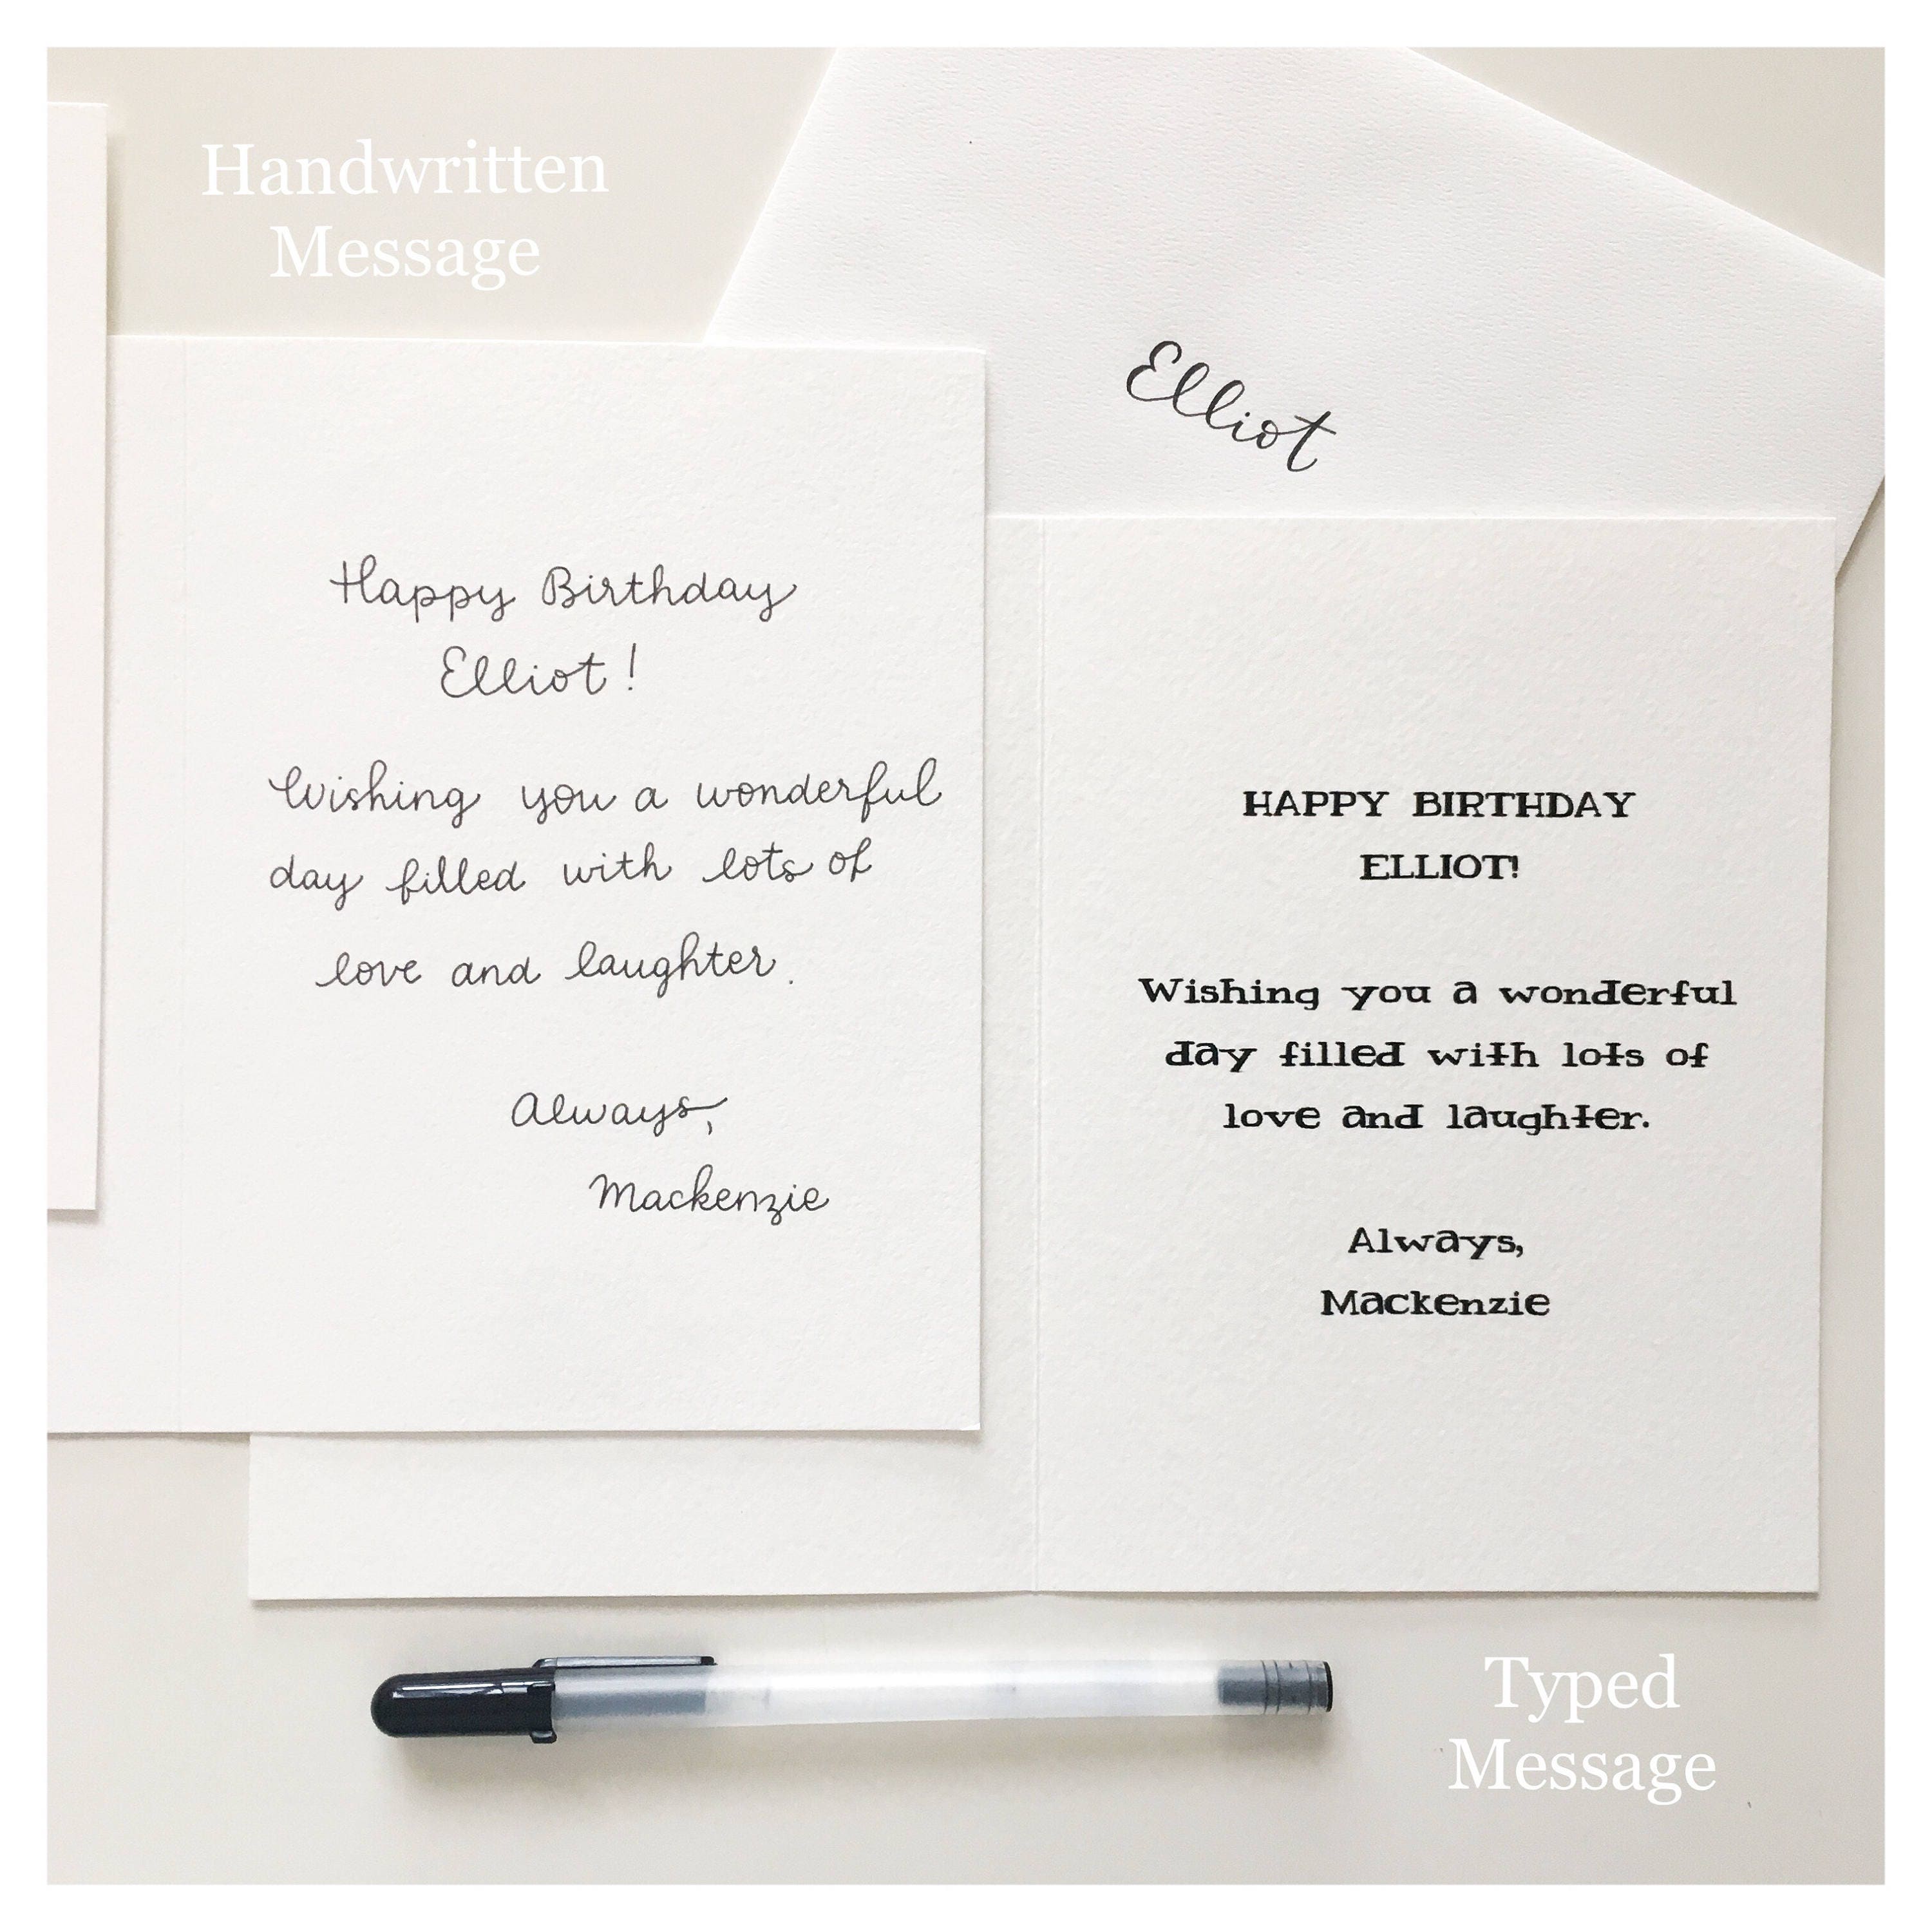 Handwritten
Message
Elliot
Happy Birthday
Elliot!
Wishing you a wonderful
day filled with lots of
love and laughter.
Always,
Mackenzie
HAPPY BIRTHDAY
ELLIOT!
Wishing you a wonderful
day filled with lots of
love and laughter.
Always,
Mackenzie
Typed
Message